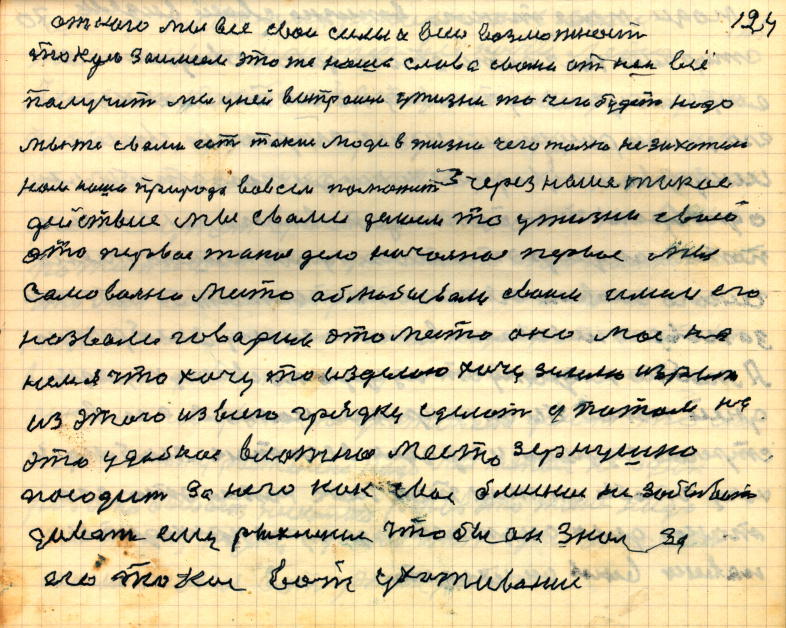 124
от кого мы все свои силы и всю возможност
такую заимеем это же наша слова своми от неи всё
получит мы у ней выпросим у жизни то чего будет надо
мы же свами ест такие люди в жизни чего толко не захотели
нам наша природа вовсем поможит З через наше такое
действие мы свами делаем то у жизни своей
это первое такое дело началное первое мы
самоволно место облюбывали своим имям его
назвали говарим это место оно мое на
нем я что хочу то изделаю хочу землю изрыю
из этого из всего грядку сделат и потом на
это удобное влажное место зернушко
посодит за него как свае близкое не забыват
делат ему рыхления чтобы он знал за
его такое вот ухаживание